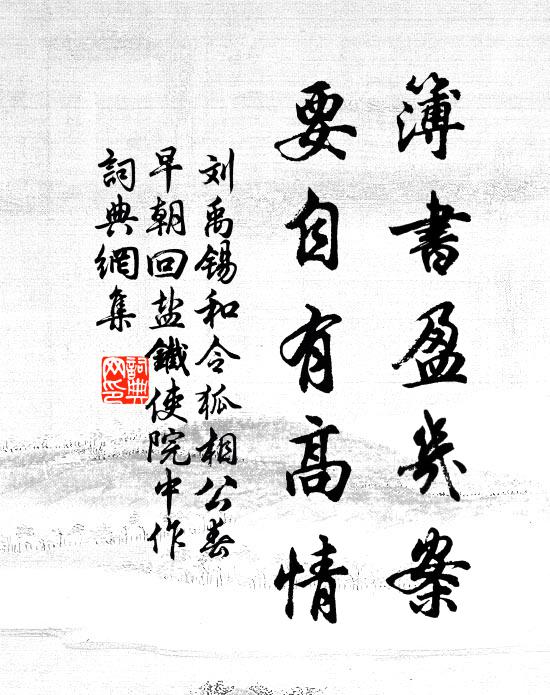 簿書盈几案
要自有高情
刘禹锡和令狐相公春
早朝回盐鐵使院中作
詞典網集
詞典
网印